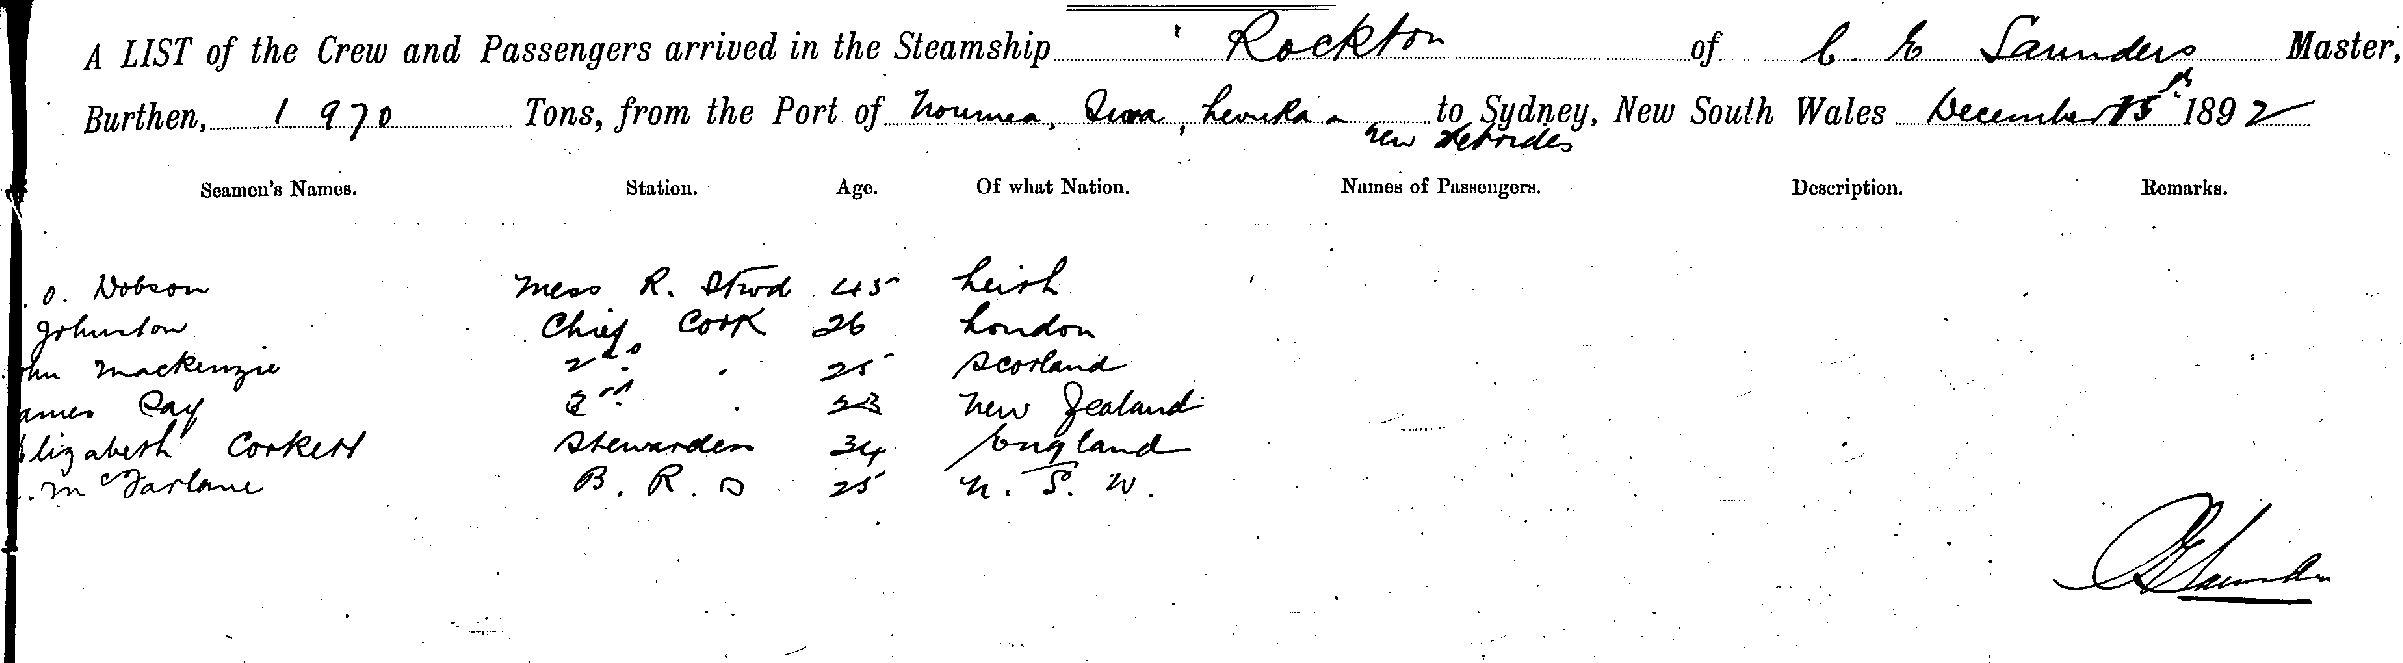 A LIST of the Crew and Passengers arrived in the Steamship Rockton of C. E Saunders Master,
Burthen, 1970 Tons, from the Port of Noumea, Suva, Levuka & New Hebrides to Sydney, New South Wales December 15th 1892
Seamen's Names. Station. Age. Of what Nation. Names of Passengers. Description. Remarks.
O. Dobson Mess R. Stwd 45 Leith
Johnston Chief Cook 26 London
ohn Mackenzie 2nd " 25 Scotland
ames Cay 3rd " 23 New Zealand
Elizabeth Corkett Stewardess 34 England
McFarlane B. R. S 25 N. S. W.
C E Saunders